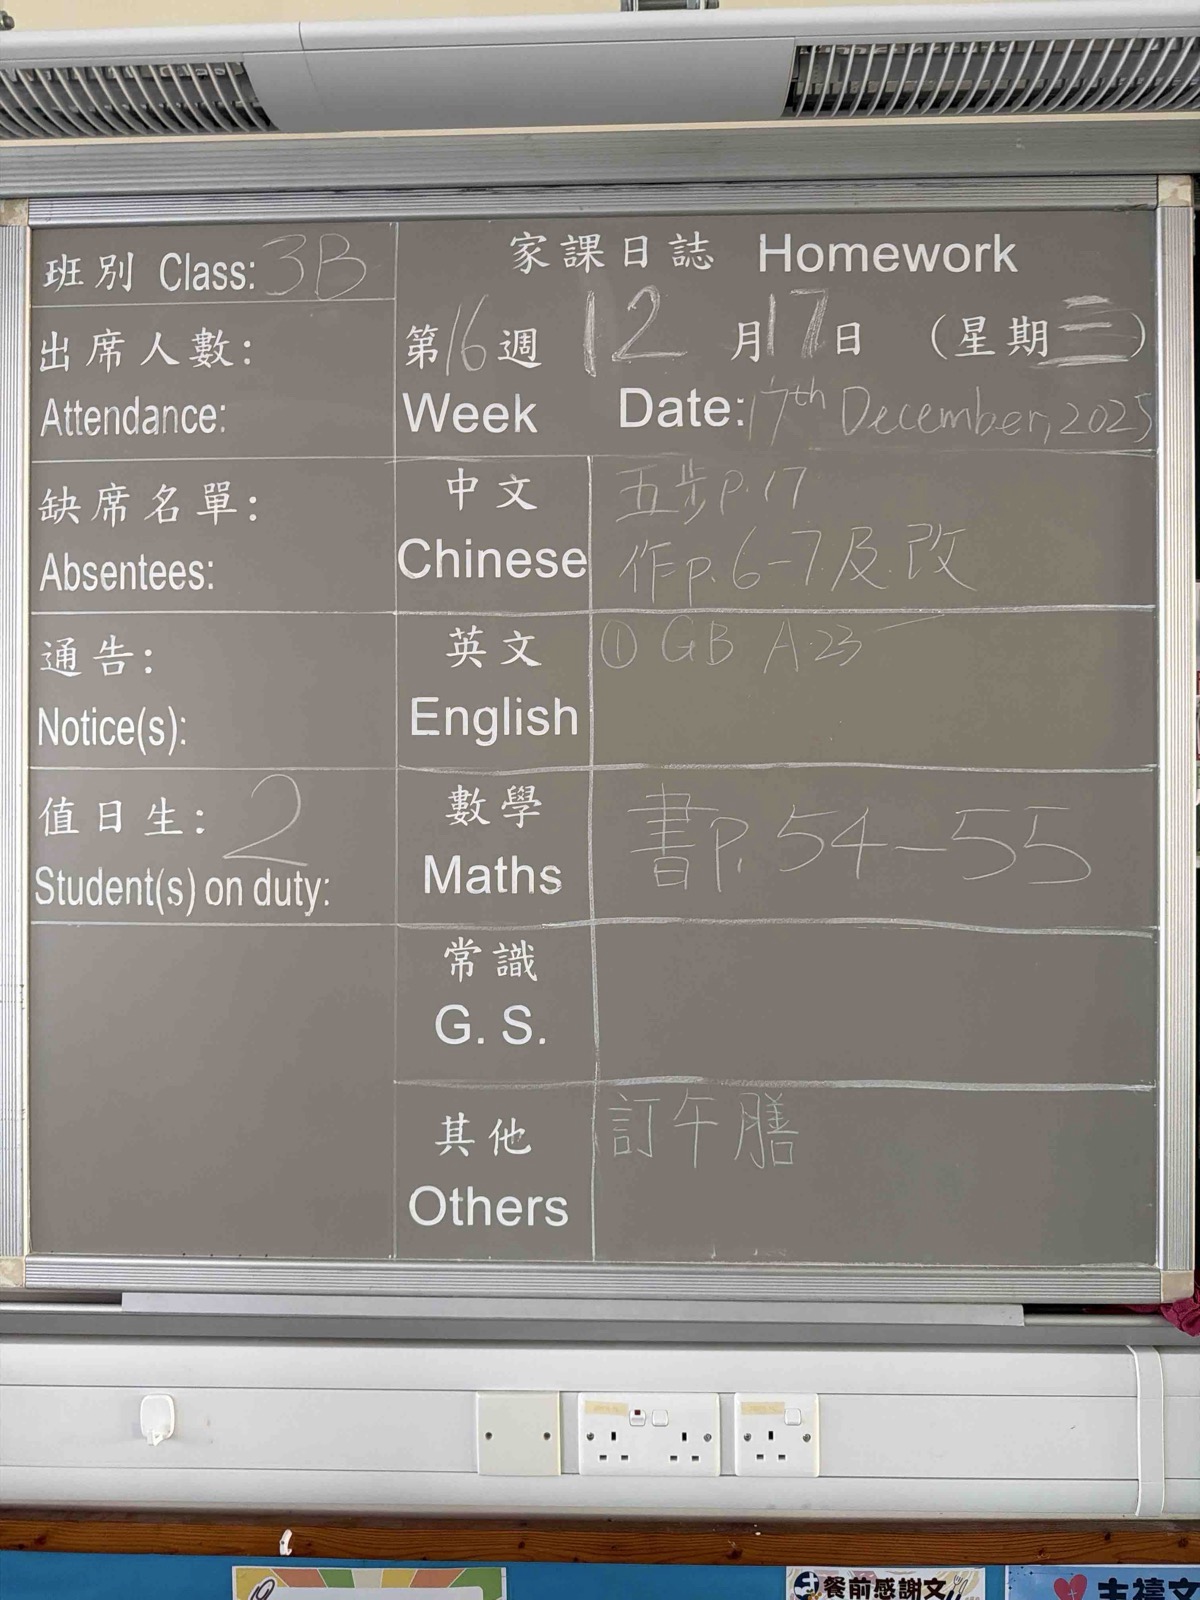 班別 Class: 3B
出席人數:
Attendance:
缺席名單:
Absentees:
通告:
Notice(s):
值日生: 2
Student(s) on duty:
家課日誌 Homework
第16週 12月17日 (星期三)
Week Date: 17th December, 2025
中文
Chinese
五步p.17
作p.6-7及改
英文
English
① GB A.23
數學
Maths
書p.54-55
常識
G. S.
其他
Others
訂午膳
餐前感謝文
主禱文